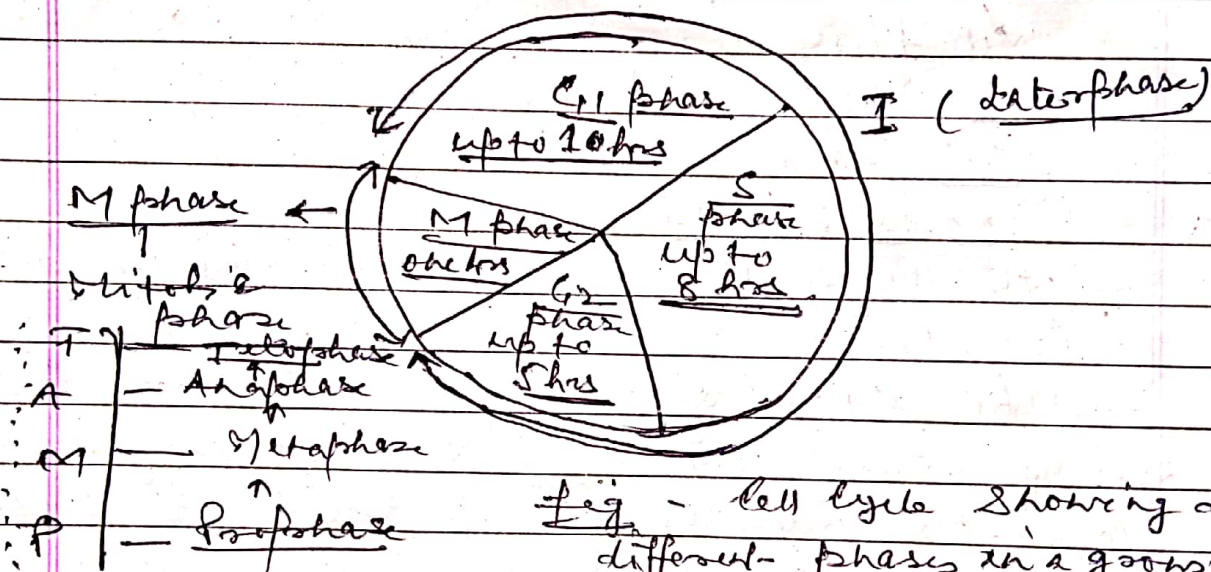 G1 phase
up to 10 hrs
I (Interphase)
S
phase
up to
8 hrs
M phase
M phase
one hrs
Mitosis
phase
G2
phase
up to
5 hrs
T — Telophase
A — Anaphase
M — Metaphase
P — Prophase
fig - Cell Cycle Showing
different phases in a